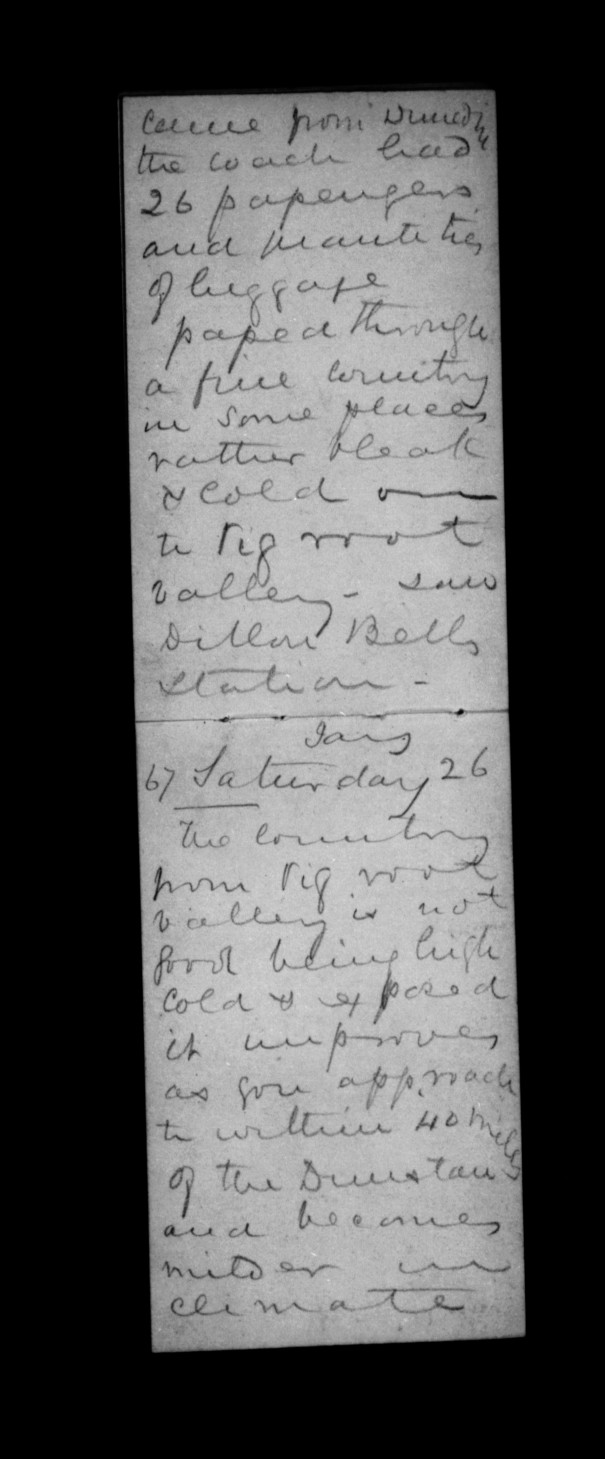 came from Dunedin
the coach had
26 passengers
and quantities
of luggage
passed through
a fine country
in some places
rather bleak
& cold on
to Pig root
valley - saw
Dillon Bells
Station -
Jany
67 Saturday 26
The country
from Pig root
valley is not
good being high
cold & exposed
it improves
as you approach
to within 40 miles
of the Dunstan
and becomes
milder in
climate